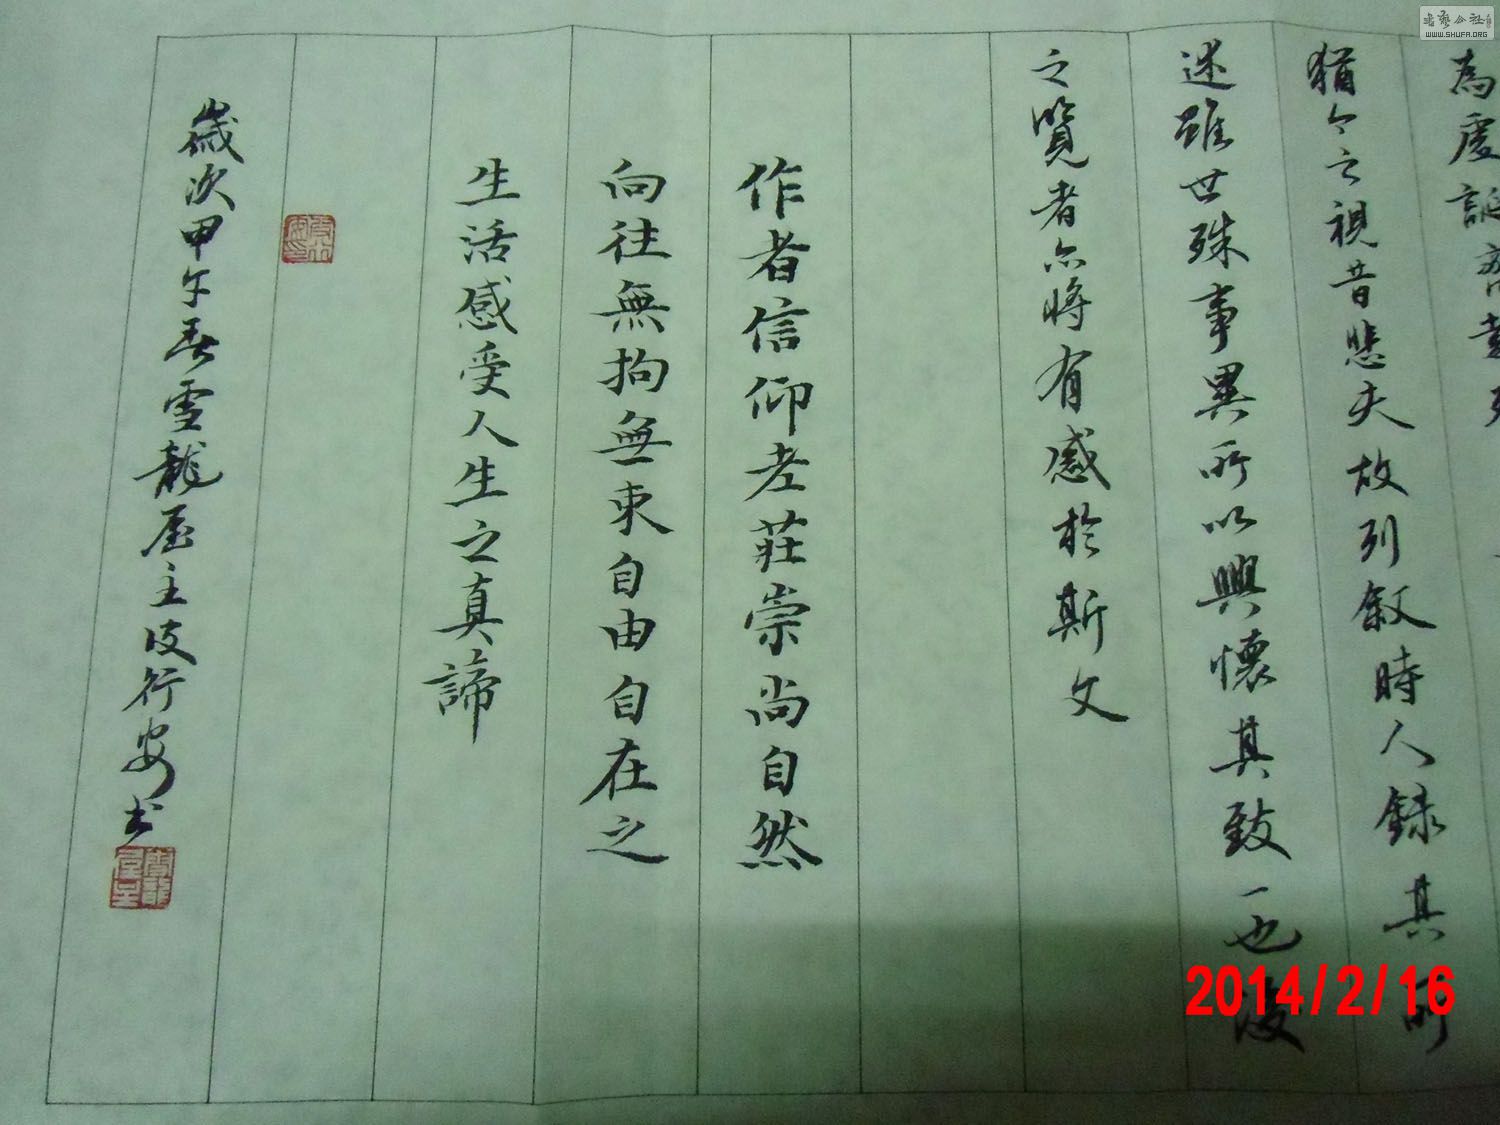 為虛誕齊彭殤
猶今之視昔悲夫故列敘時人錄其所
述雖世殊事異所以興懷其致一也後
之覽者亦將有感於斯文
作者信仰老莊崇尚自然
向往無拘無束自由自在之
生活感受人生之真諦
歲次甲午春雪龍屋主皮行安书
2014/2/16
WWW.SHUFA.ORG